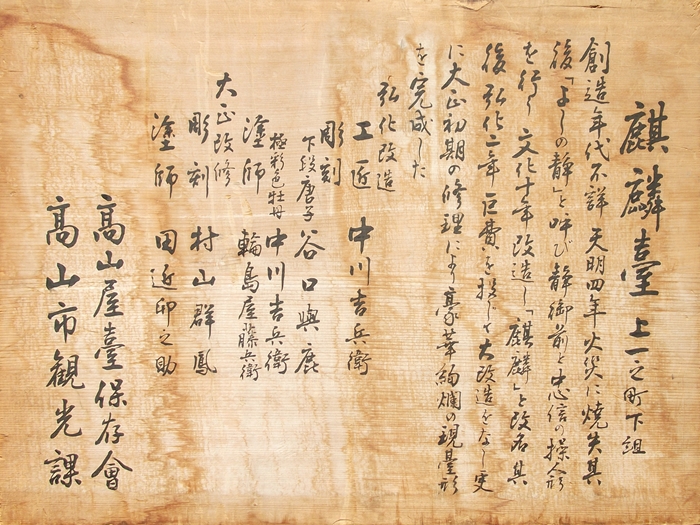 麒麟臺 上一之町下組
創造年代不詳 天明四年火災に燒失其
後「よしの静」と呼び静御前と忠信の操人形
を行う 文化十年改造し「麒麟」と改名其
後弘化二年巨費を投じて大改造をなし更
に大正初期の修理により豪華絢爛の現臺形
を完成した
弘化改造
工匠 中川吉兵衛
彫刻
下段唐子 谷口與鹿
極彩色牡丹 中川吉兵衛
塗師 輪島屋藤兵衛
大正改修
彫刻 村山群鳳
塗師 田近卯之助
高山屋臺保存會
高山市観光課